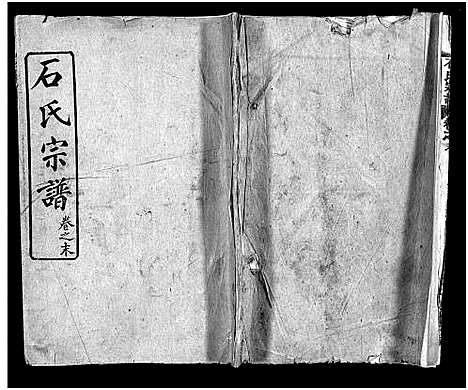 石氏宗譜
卷之末